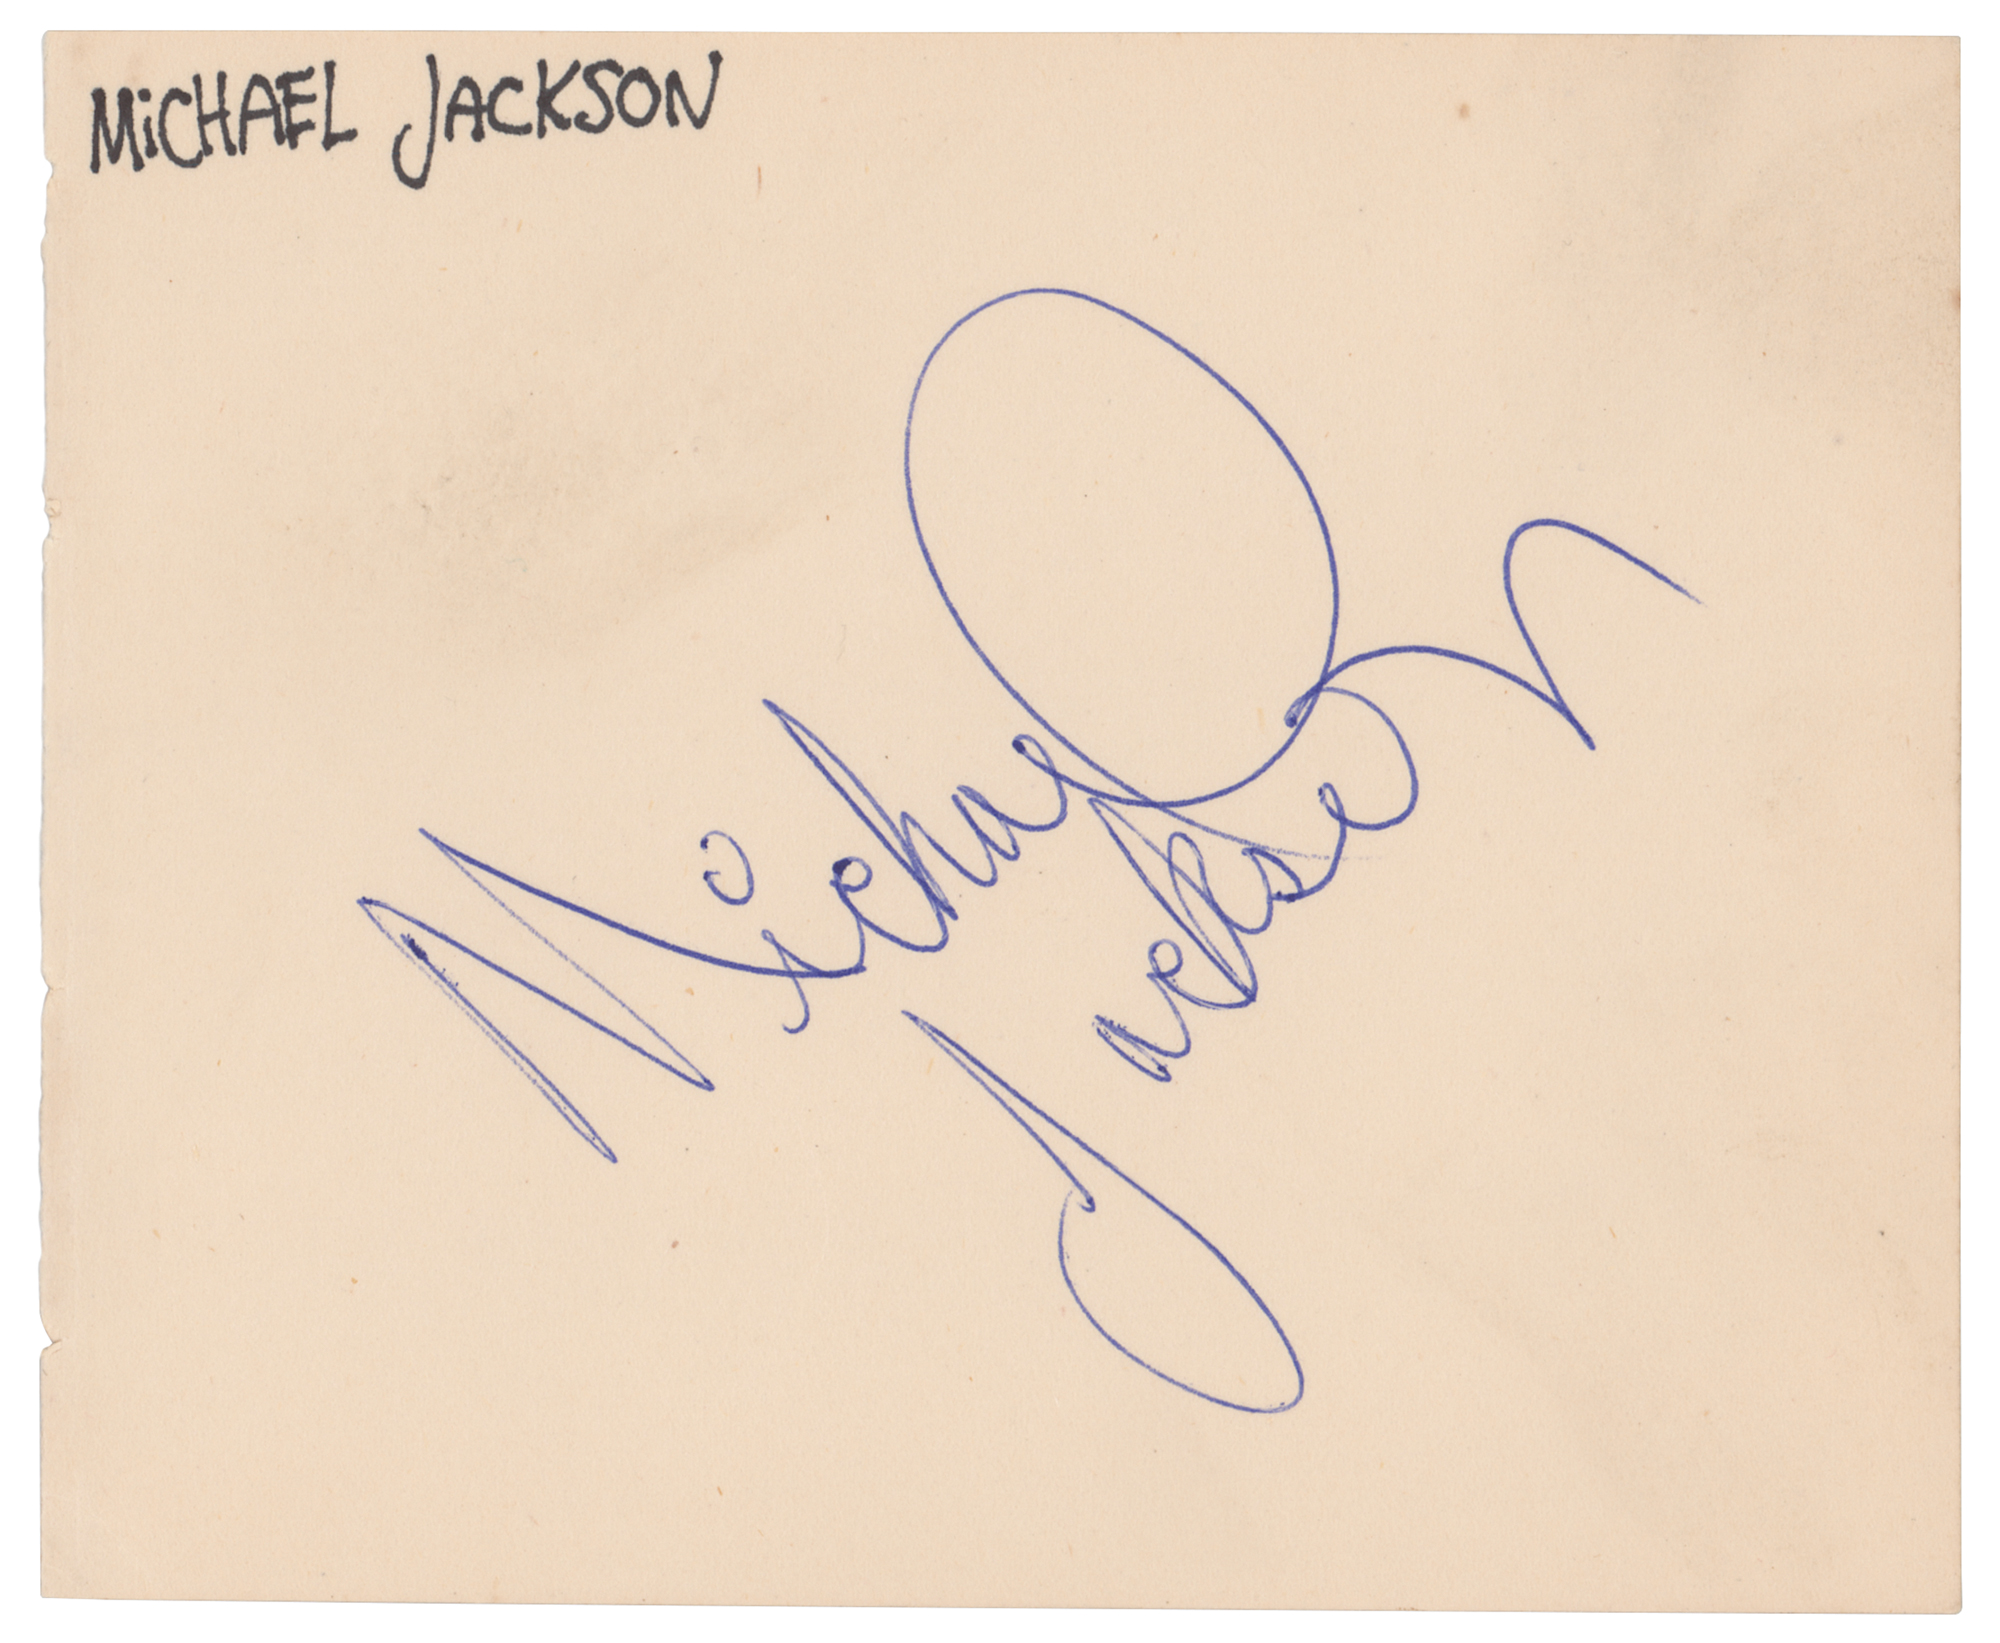 MiCHAEL JACKSON
Michael
Jackson